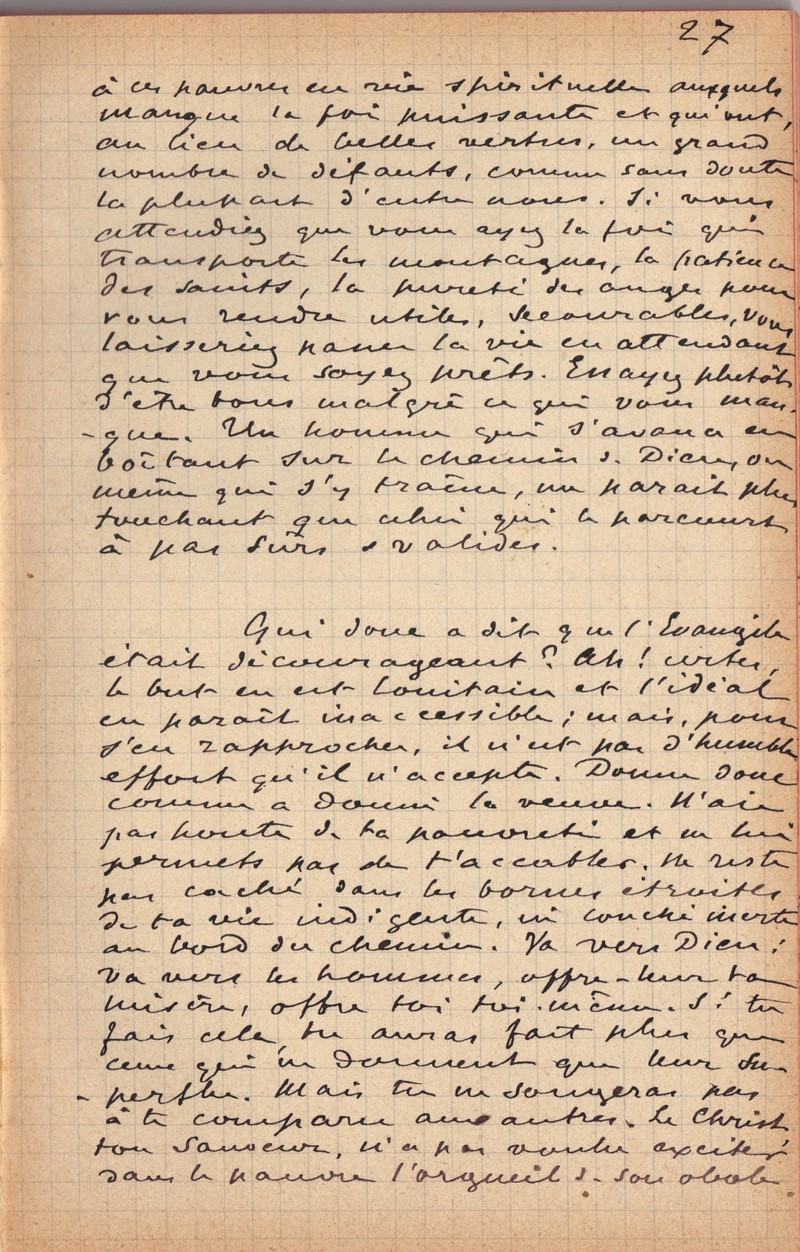 27
à ces pauvres en vie spirituelle auxquels
manque la foi puissante et qui ont,
au lieu de belles vertus, un grand
nombre de défauts, comme sans doute
la plupart d'entre nous. Si vous
attendiez que vous ayez la foi qui
transporte les montagnes, la patience
des saints, la pureté des anges pour
vous rendre utiles, secourables, vous
laisseriez passer la vie en attendant
que vous soyez prêts. Essayez plutôt
d'être bons malgré ce qui vous man-
-que. Un homme qui s'avance en
boîtant sur le chemin de Dieu, ou
même qui s'y traîne, me paraît plus
touchant que celui qui le parcourt
à pas sûrs & valides.
Qui donc a dit que l'Evangile
était décourageant? Ah! certes,
le but en est lointain et l'idéal
en paraît inaccessible; mais, pour
s'en rapprocher, il n'est pas d'humble
effort qu'il n'accepte. Donne donc
comme a donné la veuve. N'aie
pas honte de ta pauvreté et ne lui
permets pas de t'accabler. Ne reste
pas caché dans les bornes étroites
de ta vie indigente, ni couché inerte
au bord du chemin. Va vers Dieu!
Va vers les hommes, offre-leur ta
misère, offre toi toi-même. Si tu
fais cela, tu auras fait plus que
ceux qui ne donnent que leur su-
-perflu. Mais tu ne songeras pas
à te comparer aux autres. Le Christ
ton Sauveur, n'a pas voulu exciter
dans le pauvre l'orgueil de son obole